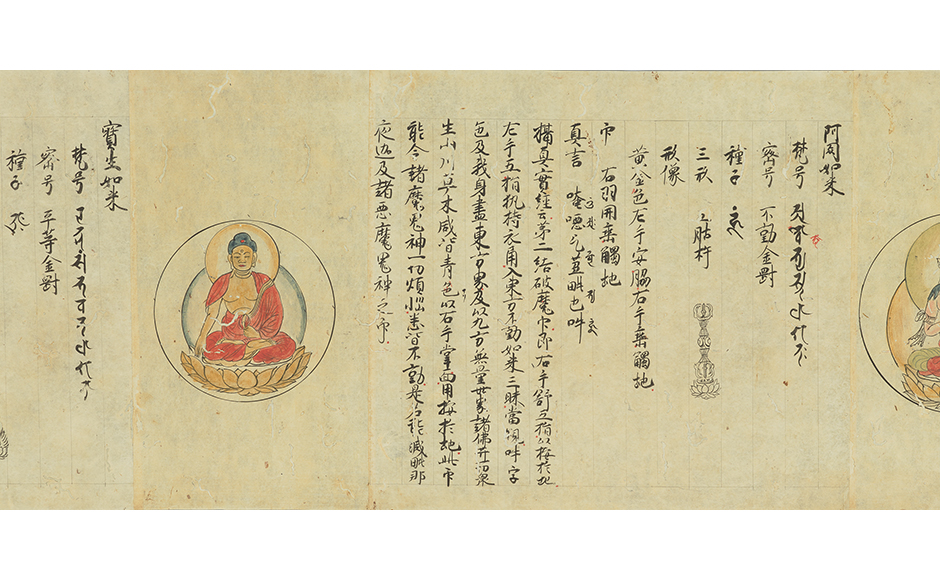 阿閦如来
梵号
密号 不動金剛
種子
三形 股杵
形像
黄金色左手安脇右手垂觸地
印 右羽開垂觸地
真言 唵悪乞芻毗也吽
攝真實經云第二結破魔印即右手舒五指以按於地
左手五指執持衣角入東方不動如来三昧當觀吽字
色及我身盡東方界及以九方無量世界諸佛并諸衆
生山川草木咸皆青色以右手掌面用按於地此印
能令諸魔鬼神一切煩惱悉皆不動是名能滅毗那
夜迦及諸悪魔鬼神之印
寶生如来
梵号
密号 平等金剛
種子